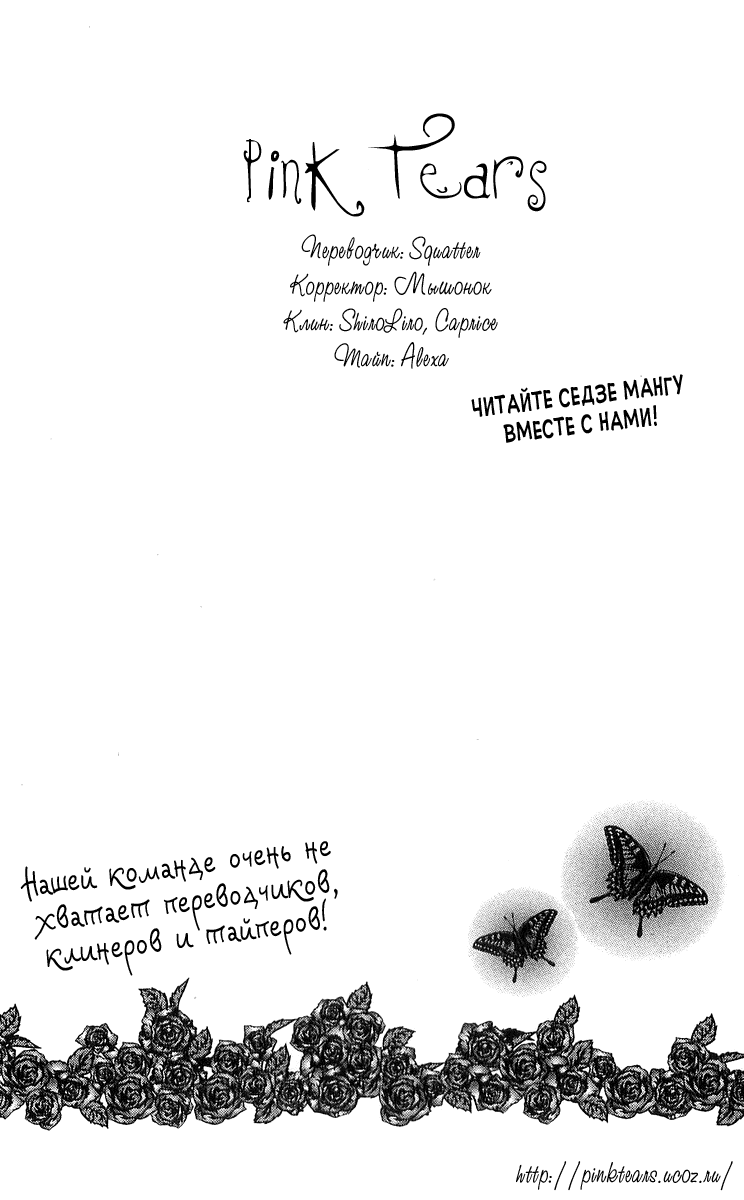 Pink Tears
Переводчик: Squatter
Корректор: Мышонок
Клин: ShiroLiro, Caprice
Тайп: Alexa
ЧИТАЙТЕ СЕДЗЕ МАНГУ
ВМЕСТЕ С НАМИ!
Нашей команде очень не
хватает переводчиков,
клинеров и тайперов!
http://pinktears.ucoz.ru/